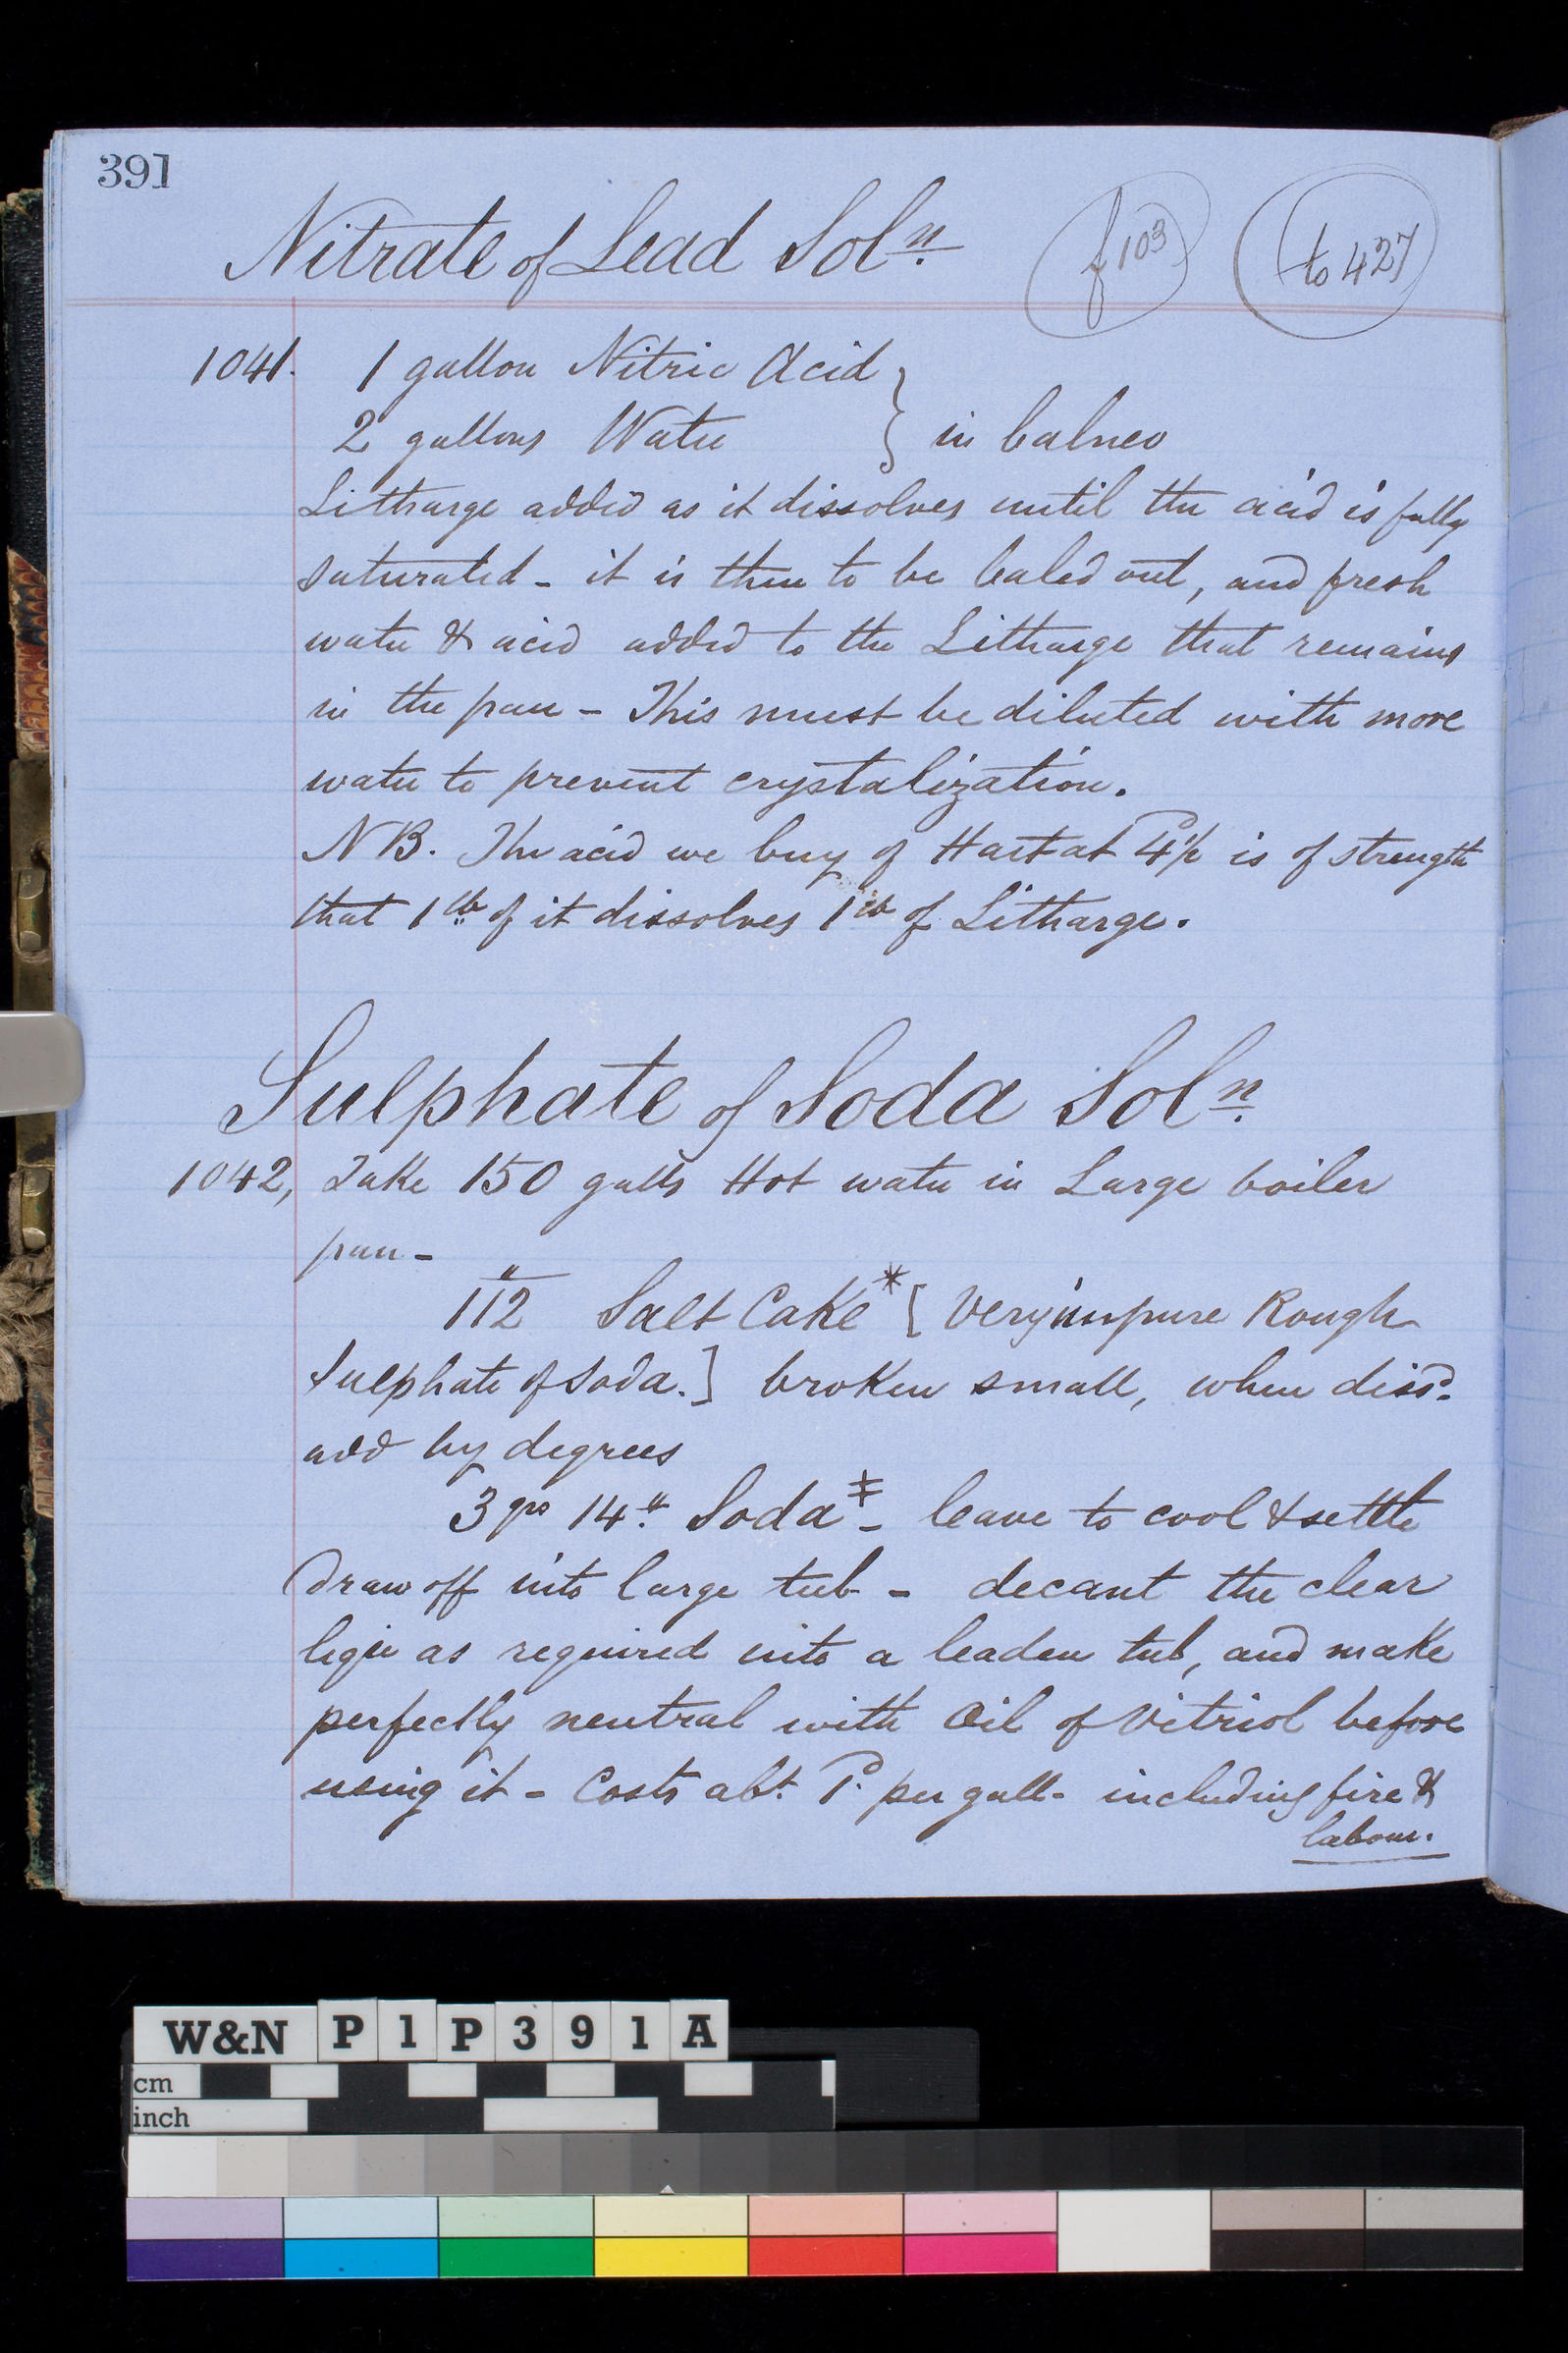 391
Nitrate of Lead Soln.
f 103
to 427
1041. 1 gallon Nitric Acid
2 gallons Water } in balneo
Litharge added as it dissolves until the acid is fully
saturated - it is then to be baled out, and fresh
water & acid added to the Litharge that remains
in the pan - This must be diluted with more
water to prevent crystalization.
NB. The acid we buy of Hart at is of strength
that 1 lb of it dissolves 1 lb of Litharge.
Sulphate of Soda Soln.
1042, Take 150 galls Hot water in Large boiler
pan -
112 Salt Cake * [ Very impure Rough
Sulphate of Soda. ] broken small, when dissd.
add by degrees
3 qrs 14 " Soda ‡ - leave to cool & settle
Draw off into large tub - decant the clear
liqr as required into a leaden tub, and make
perfectly neutral with Oil of Vitriol before
using it - Costs abt. 1d. per gall - including fire &
labour.
W&N P1P391A
cm
inch